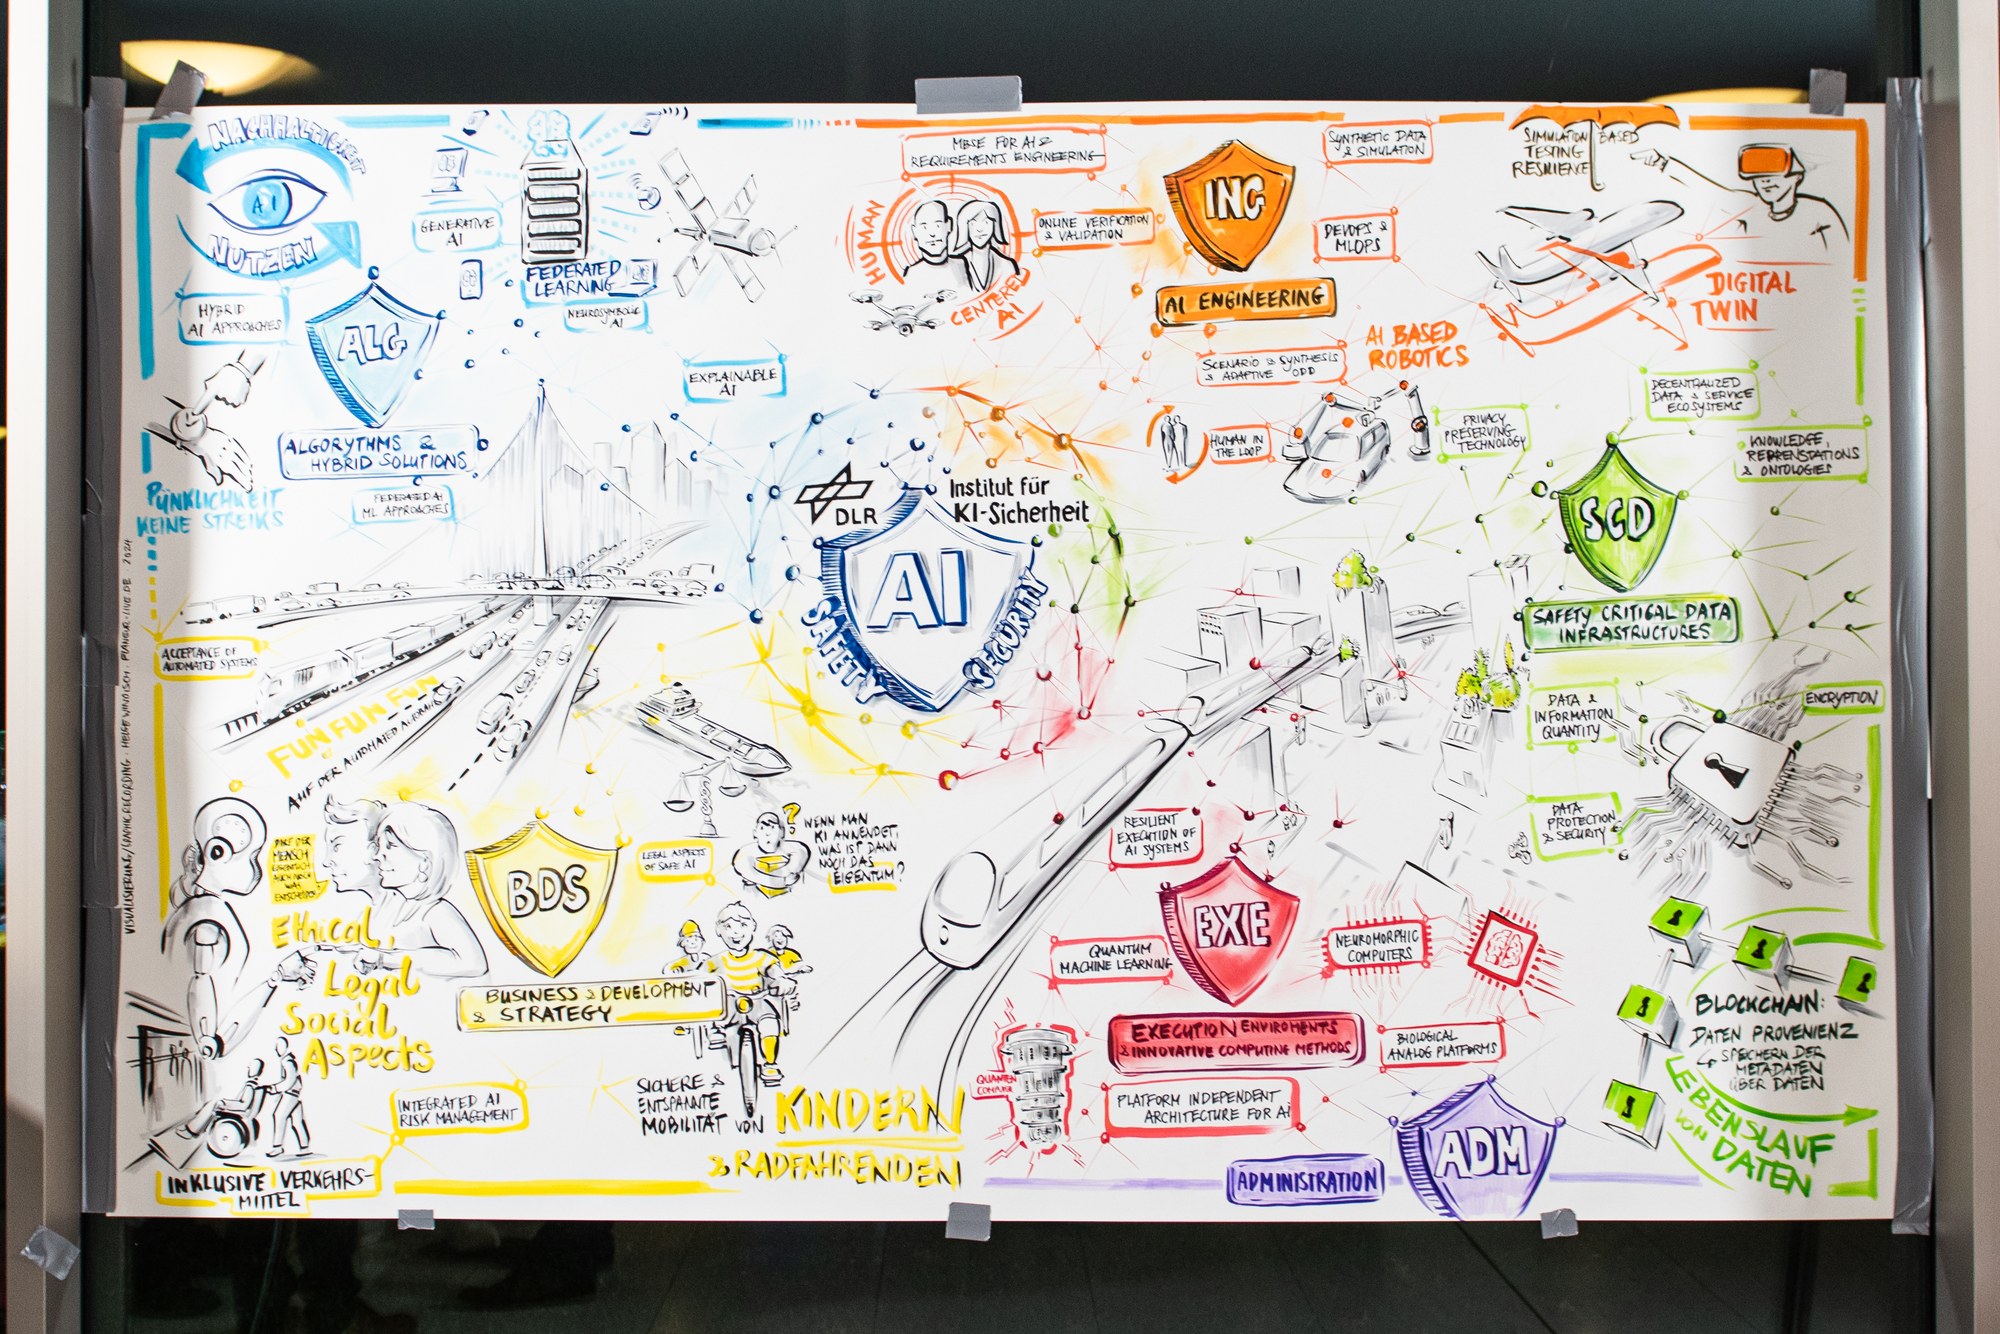 NACHHALTIGKEIT
AI
NUTZEN
GENERATIVE
AI
FEDERATED
LEARNING
NEUROSYMBOLIC
AI
HYBRID
AI APPROACHES
ALG
ALGORYTHMS &
HYBRID SOLUTIONS
FEDERATED AI
ML APPROACHES
EXPLAINABLE
AI
PÜNKLICHKEIT
KEINE STREIKS
MBSE FOR AI &
REQUIREMENTS ENGINEERING
HUMAN
CENTERED
AI
ONLINE VERIFICATION
& VALIDATION
ING
AI ENGINEERING
SYNTHETIC DATA
& SIMULATION
DEVOPS &
MLOPS
SCENARIO & SYNTHESIS
& ADAPTIVE ODD
SIMULATION BASED
TESTING
RESILIENCE
DIGITAL
TWIN
AI BASED
ROBOTICS
HUMAN IN
THE LOOP
PRIVACY
PRESERVING
TECHNOLOGY
DECENTRALIZED
DATA & SERVICE
ECOSYSTEMS
KNOWLEDGE,
REPRENSTATIONS
& ONTOLOGIES
SCD
SAFETY CRITICAL DATA
INFRASTRUCTURES
DATA &
INFORMATION
QUANTITY
ENCRYPTION
DATA
PROTECTION
& SECURITY
BLOCKCHAIN:
DATEN PROVENIENZ
SPEICHERN DER
METADATEN
ÜBER DATEN
LEBENSLAUF
VON DATEN
DLR
Institut für
KI-Sicherheit
AI
SAFETY
SECURITY
ACCEPTANCE OF
AUTOMATED SYSTEMS
FUN FUN FUN
AUF DER AUTOMATED AUTOBAHN
VISUALISIERUNG/GRAPHIC RECORDING · HEIGE WINDISCH · PLANUR-LIVE.DE 2024
MENSCH
WAS
Ethical,
Legal
Social
Aspects
BDS
BUSINESS & DEVELOPMENT
& STRATEGY
LEGAL ASPECTS
OF SAFE AI
?
WENN MAN
KI ANWENDET,
WAS IST DANN
NOCH DAS
EIGENTUM?
INTEGRATED AI
RISK MANAGEMENT
INKLUSIVE VERKEHRS-
MITTEL
SICHERE &
ENTSPANNTE
MOBILITÄT VON
KINDERN
& RADFAHRENDEN
RESILIENT
EXECUTION OF
AI SYSTEMS
EXE
QUANTUM
MACHINE LEARNING
NEUROMORPHIC
COMPUTERS
EXECUTION ENVIROMENTS
& INNOVATIVE COMPUTING METHODS
BIOLOGICAL
ANALOG PLATFORMS
QUANTEN
PLATFORM INDEPENDENT
ARCHITECTURE FOR AI
ADM
ADMINISTRATION